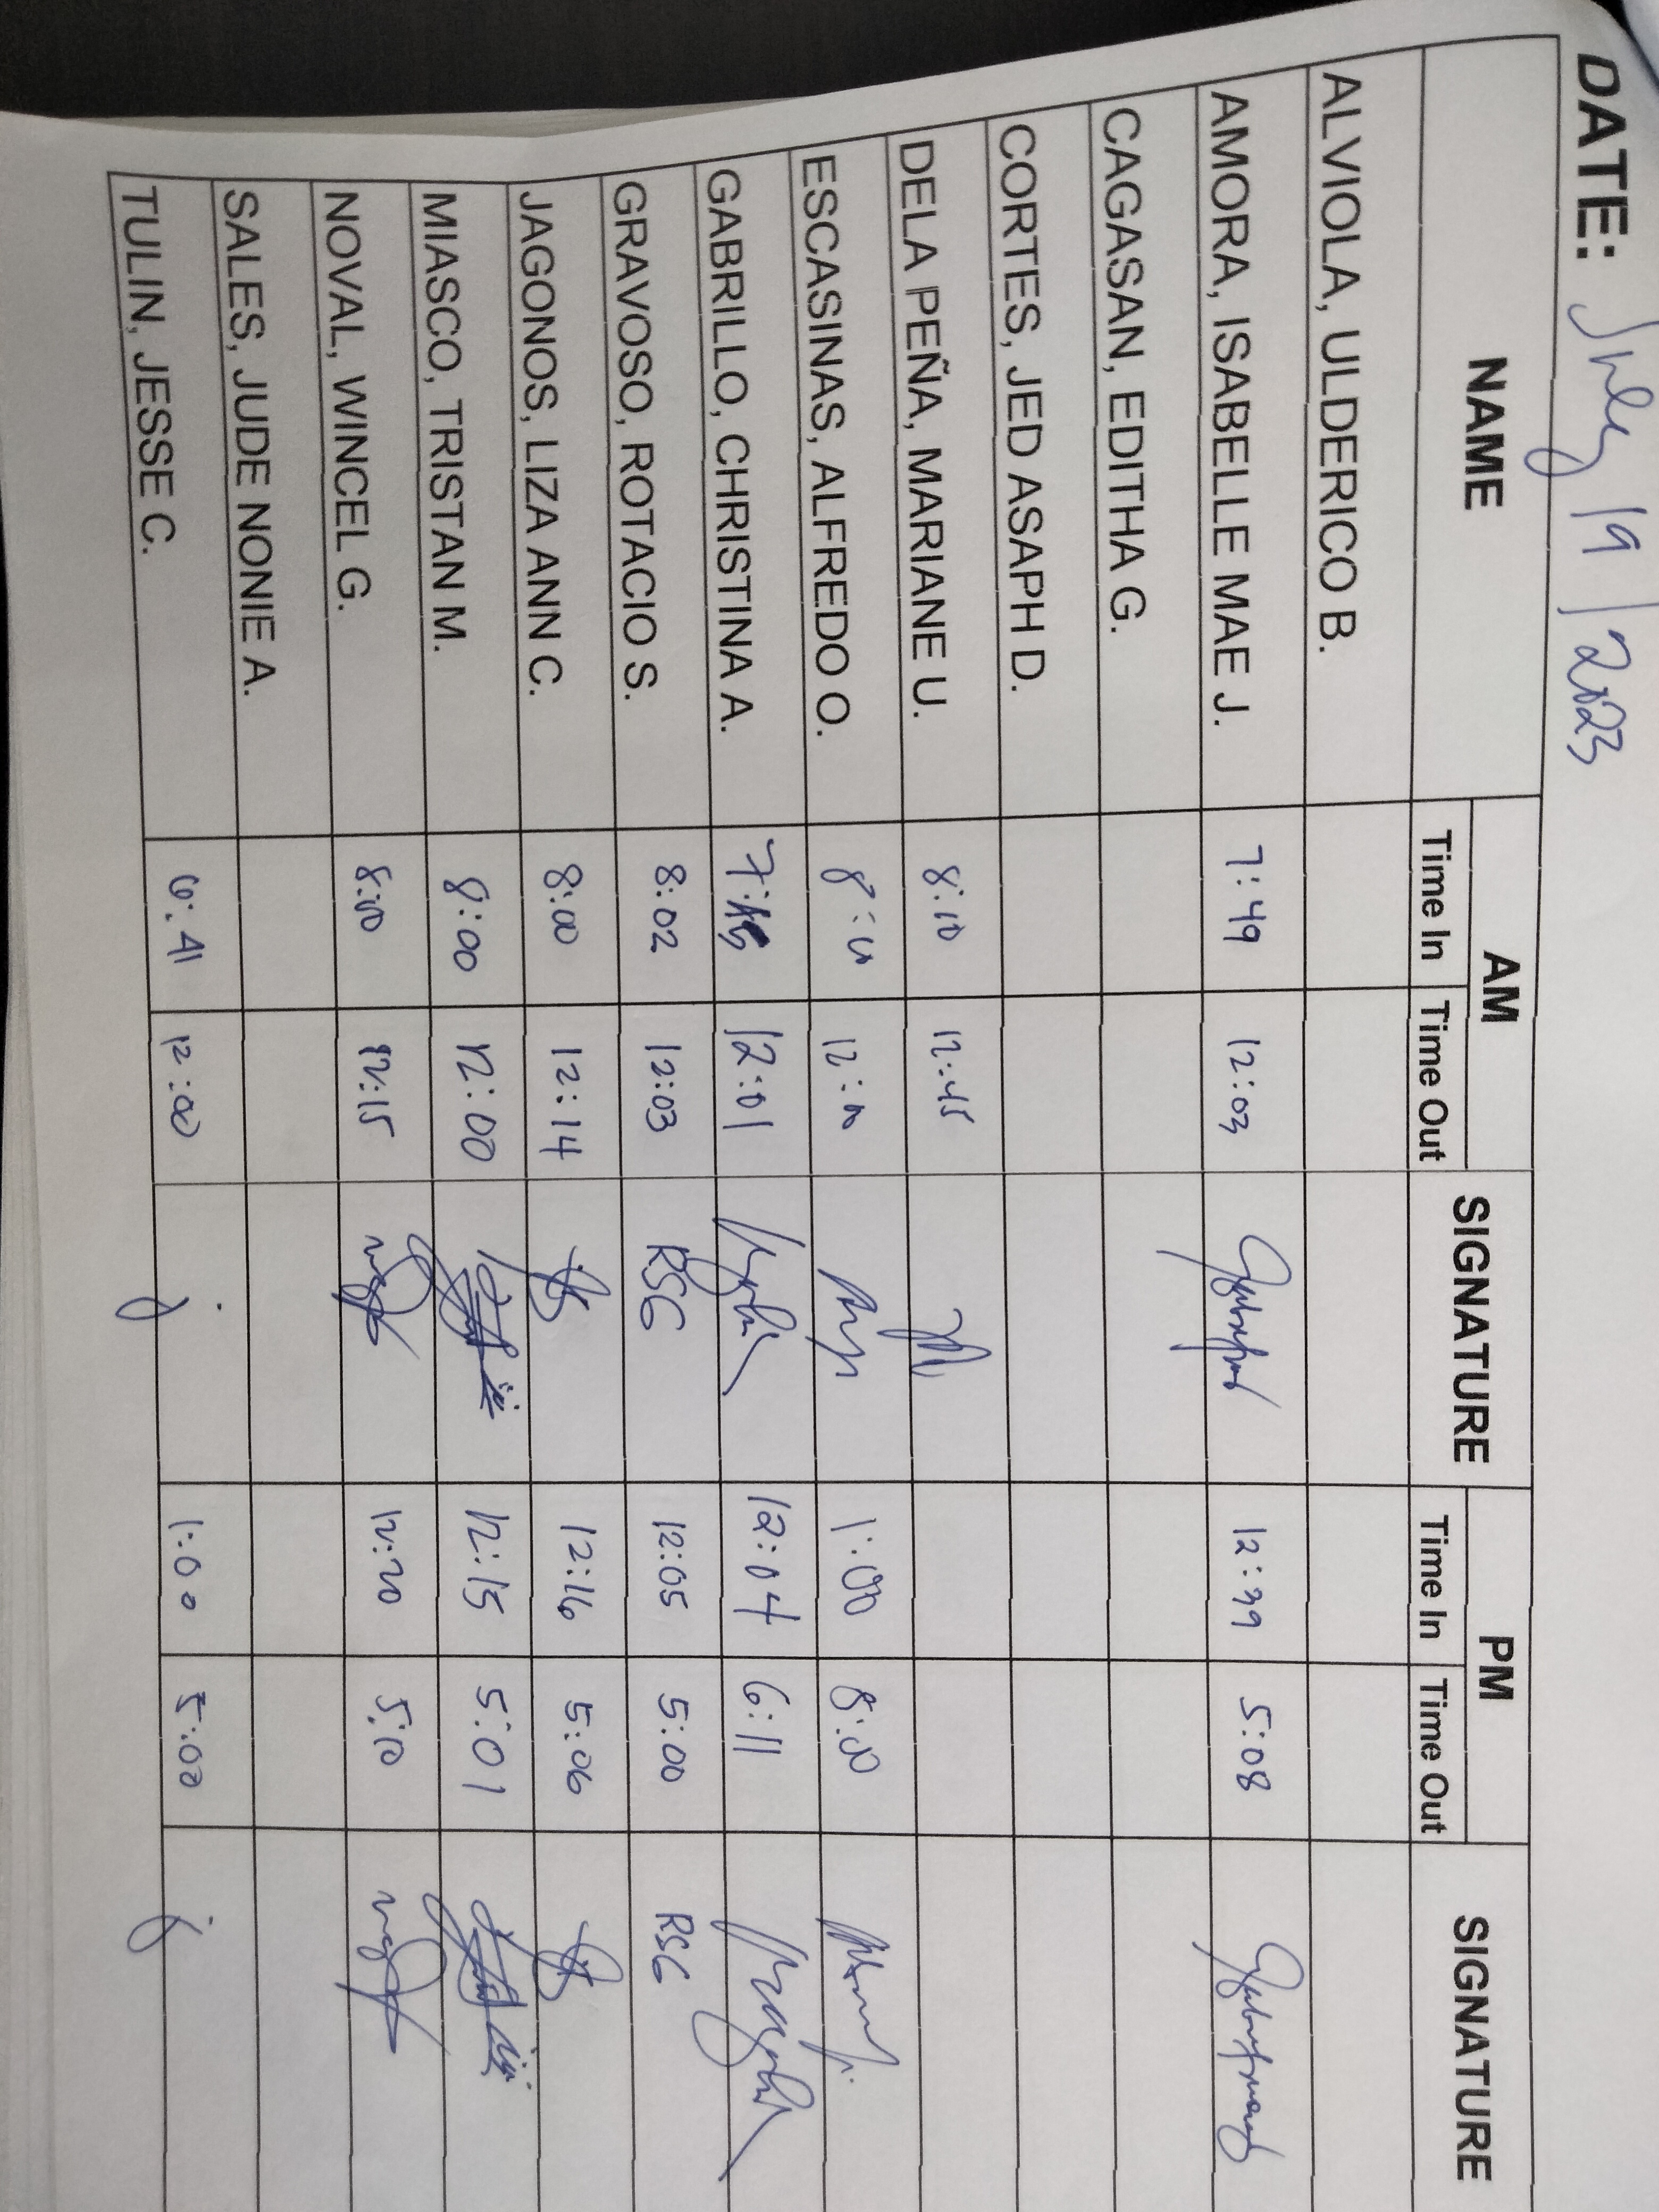 DATE: July 19, 2023
NAME AM SIGNATURE PM SIGNATURE
Time In Time Out Time In Time Out
ALVIOLA, ULDERICO B.
AMORA, ISABELLE MAE J. 7:49 12:03 12:39 5:08
CAGASAN, EDITHA G.
CORTES, JED ASAPH D.
DELA PEÑA, MARIANE U. 8:10 12:45
ESCASINAS, ALFREDO O. 8:00 12:00 1:00 8:00
GABRILLO, CHRISTINA A. 12:01 12:04 6:11
GRAVOSO, ROTACIO S. 8:02 12:03 RSG 12:05 5:00 RSG
JAGONOS, LIZA ANN C. 8:00 12:14 12:16 5:06
MIASCO, TRISTAN M. 8:00 12:00 12:15 5:01
NOVAL, WINCEL G. 8:00 12:15 12:20 5:10
SALES, JUDE NONIE A.
TULIN, JESSE C. 6:41 12:00 j 1:00 5:00 j